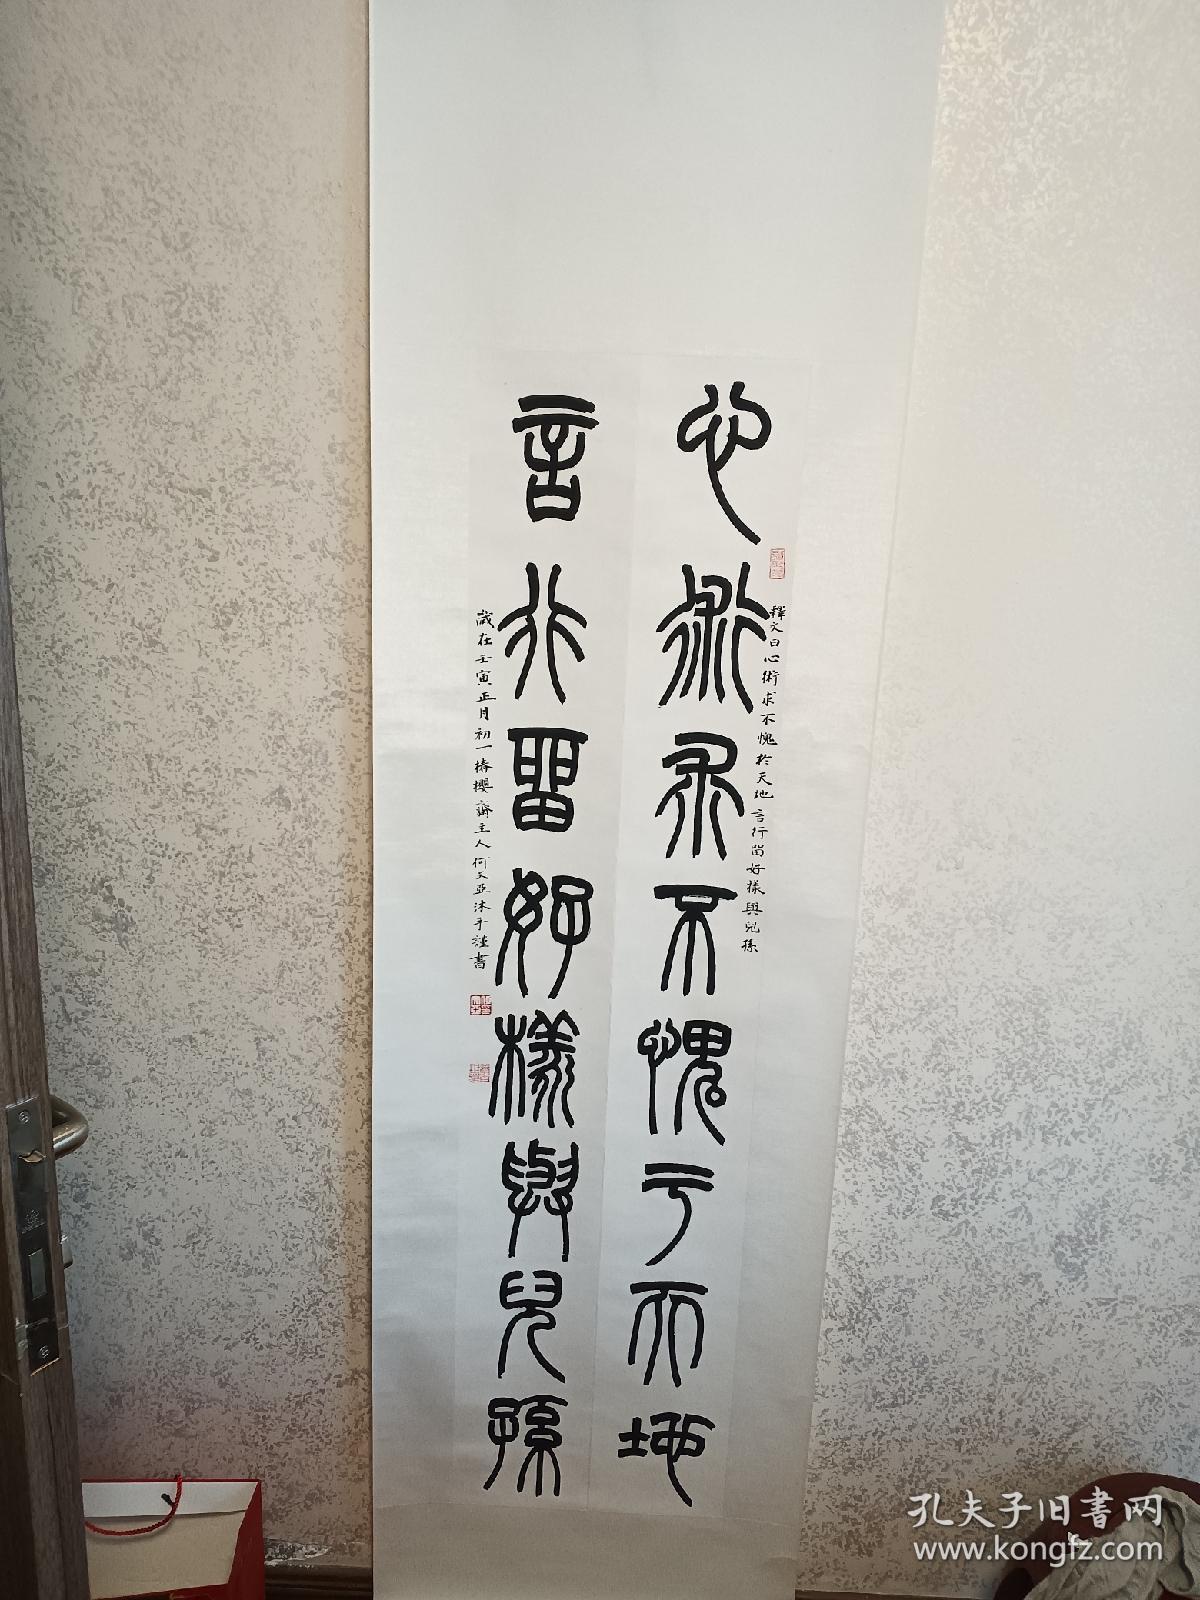 心術求不愧亏天地
釋文曰心術求不愧於天地言行留好樣與兒孫
言行留好樣與兒孫
歲在壬寅正月初一擣櫻齋主人何文亞沐手謹書
孔夫子旧書网
www.kongfz.com